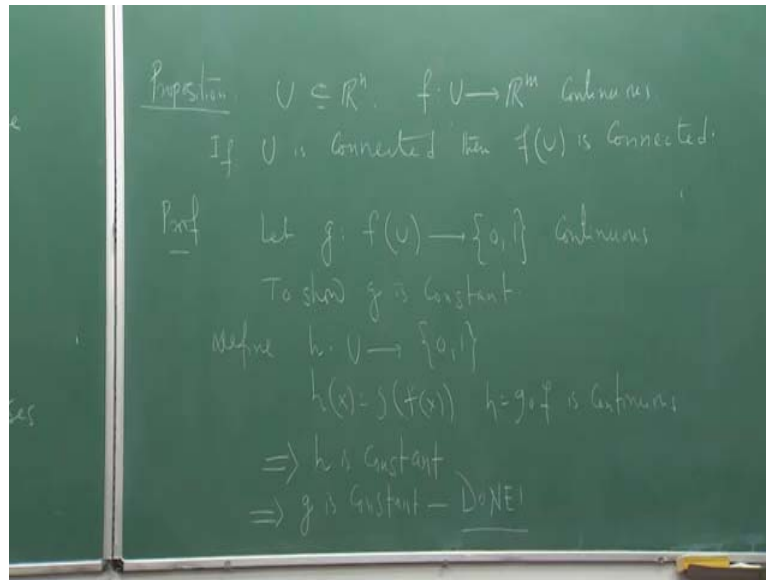 Proposition. U ⊆ ℝⁿ. f: U → ℝᵐ Continuous
If U is Connected then f(U) is Connected.
Proof Let g: f(U) → {0,1} Continuous
To show g is Constant.
Define h: U → {0,1}
h(x) = g(f(x)) h = g∘f is Continuous
⇒ h is Constant
⇒ g is Constant — DONE!
e
ses